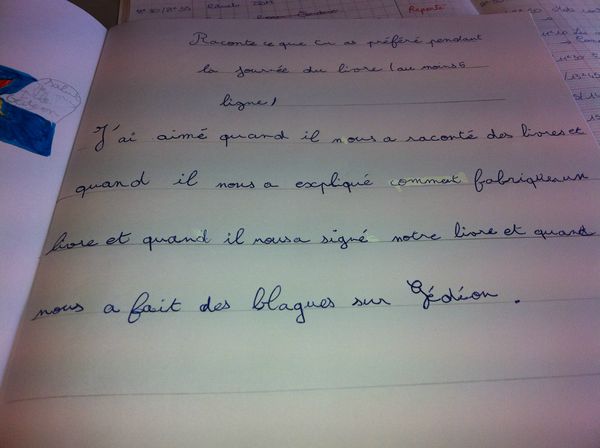 Raconte ce que tu as préféré pendant
la journée du livre (au moins 6
ligne)
J'ai aimé quand il nous a raconté des livres et
quand il nous a expliqué comment fabriquer un
livre et quand il nous a signé notre livre et quand
nous a fait des blagues sur Gédéon.